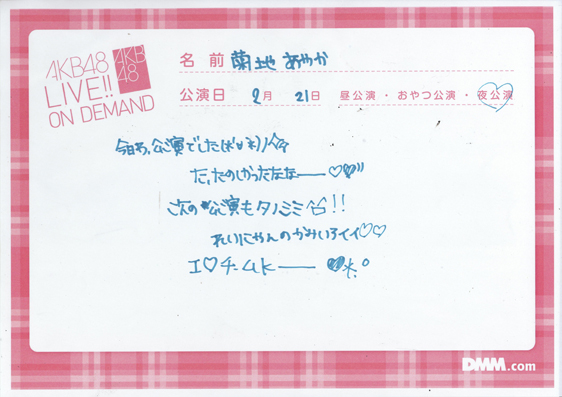 AKB48
LIVE!!
ON DEMAND
AKB
48
名前 菊地 あやか
公演日 9月 21日 昼公演・おやつ公演・夜公演
公演でした
たのしかったなな――♡♥
次の公演もタノミミ!!
れいにゃんのかみいろイイ♡♡
I♡チームK―― ♥
DMM.com